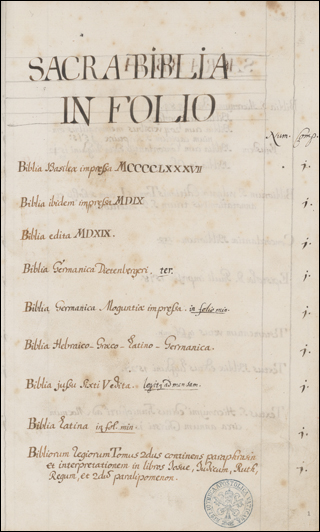 SACRA BIBLIA
IN FOLIO
Num. Comp.
Biblia Basileæ impressa MCCCCLXXXVII . j.
Biblia ibidem impressa MDIX j.
Biblia edita MDXIX. j.
Biblia Germanica Dietenbergeri. j.
Biblia Germanica Moguntiæ impressa. in folio min. j.
Biblia Hebraico-Græco-Latino-Germanica. j.
Biblia jussu Sixti V edita. j.
Biblia Latina in fol. min. j.
Bibliorum Regiorum Tomus 2dus continens paraphrasin
et interpretationem in libros Josue, Judicum, Ruth, j.
Regum, et 2dum paralipomenon.